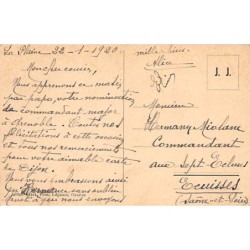 La Plaine 22-1-1920
Mon cher cousin,
Nous apprenons ce matin
par papa, votre nomination
de commandant major
à Grenoble. Toutes nos
félicitations à cette occasion
et tous nos remerciements
pour votre aimable carte
de Dijon.
Nous vous embrassons ainsi
que sans oublier
ce que nous envoyons
mille bises
Alice
J. J.
Monsieur
Commandant
aux Sept Ecluses
Ecuisses
(Saône-et-Loire)